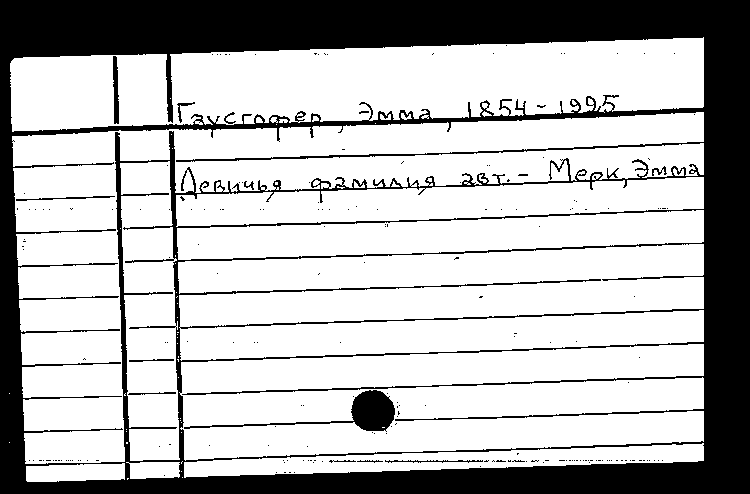 Гаусгофер, Эмма, 1854-1995
Девичья фамилия авт. - Мерк, Эмма